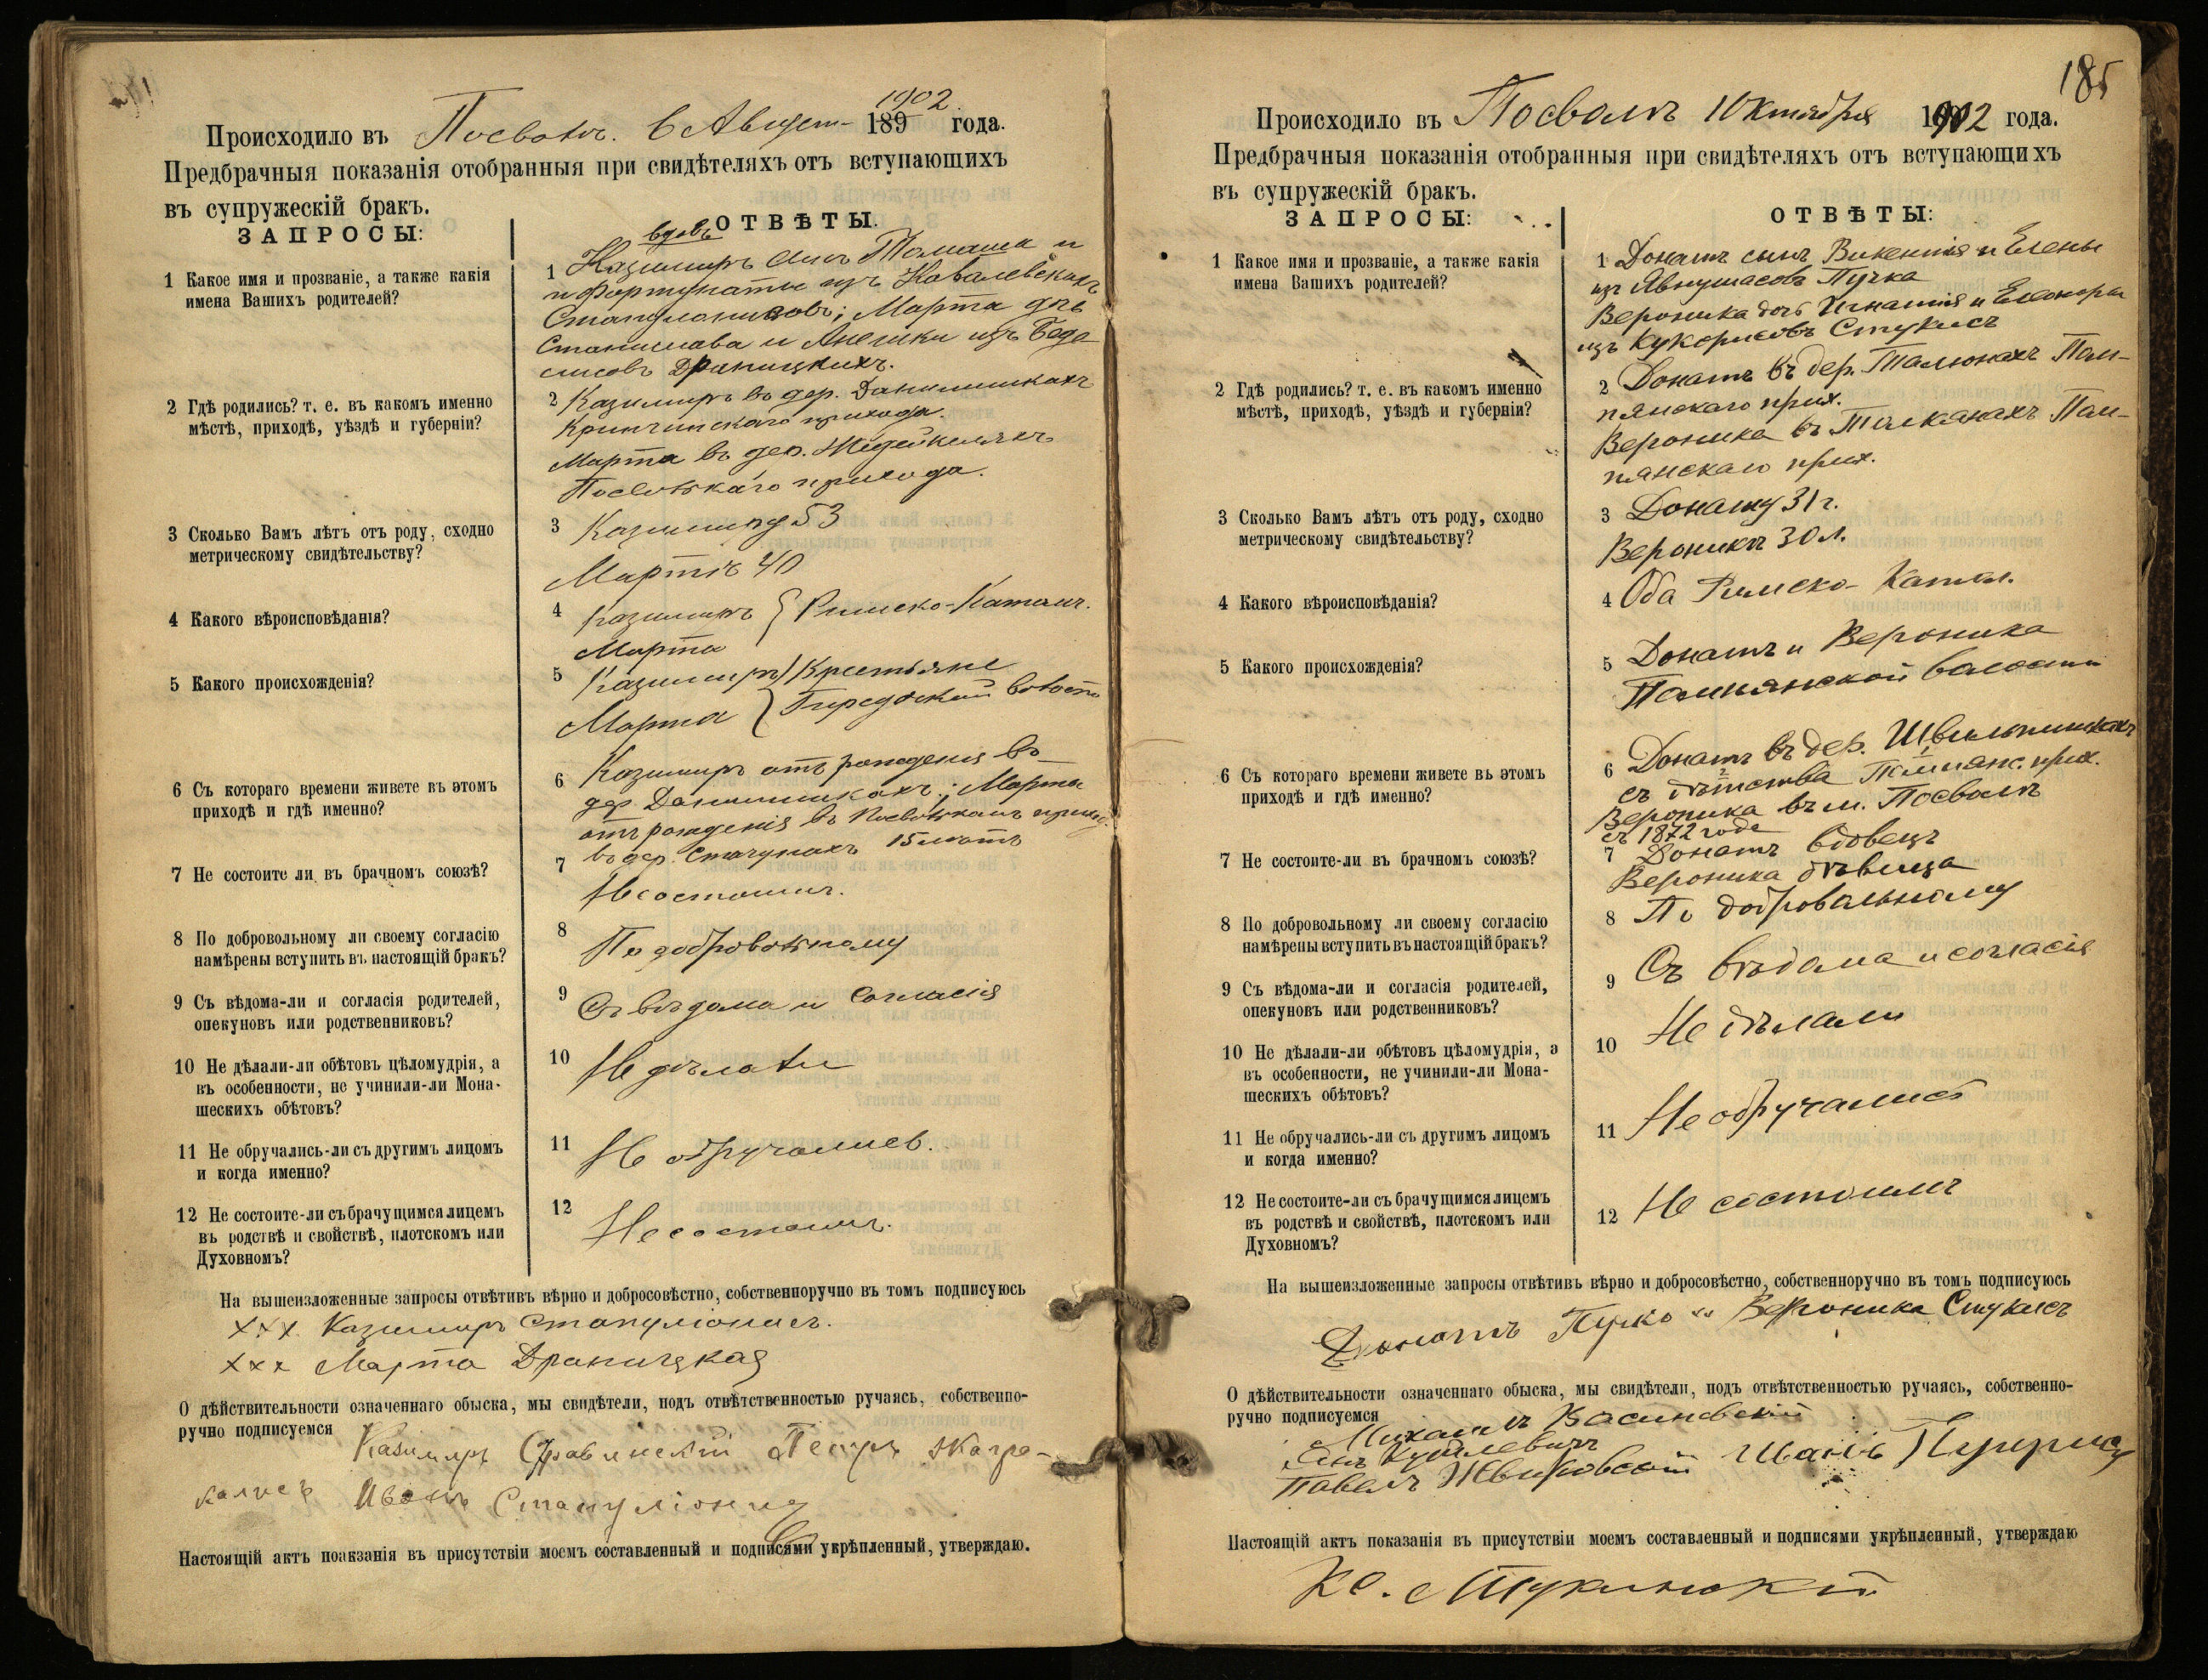 1902
Происходило въ Посволь. 6 Август 189 года.
Предбрачныя показанія отобранныя при свидѣтеляхъ отъ вступающихъ
въ супружескій бракъ.
ЗАПРОСЫ:
ОТВѢТЫ.
1 Какое имя и прозваніе, а также какія
имена Вашихъ родителей?
вдовъ
1 Казимиръ сынъ Томаша и
и Фортунаты изъ Ковалевскихъ
Стапулонисовъ; Марта дчь
Станислава и Анелики изъ
Драницкихъ.
2 Гдѣ родились? т. е. въ какомъ именно
мѣстѣ, приходѣ, уѣздѣ и губерніи?
2 Казимиръ въ дер. Данилишкахъ
Кринчинскаго прихода.
Марта въ дер. Жедейкеляхъ
Посвольскаго прихода.
3 Сколько Вамъ лѣтъ отъ роду, сходно
метрическому свидѣтельству?
3 Казимиру 53
Мартѣ 40
4 Какого вѣроисповѣданія?
4 Казимиръ } Римско-Катол.
Марта
5 Какого происхожденія?
5 Казимиръ } Крестьяне
Марта } волости
6 Съ котораго времени живете въ этомъ
приходѣ и гдѣ именно?
6 Казимиръ отъ рожденія въ
дер. Данилишкахъ; Марта
отъ рожденія въ Посвольскомъ прих.
въ дер. Стачунахъ 15 лѣтъ
7 Не состоите ли въ брачномъ союзѣ?
7 Не состоимъ.
8 По добровольному ли своему согласію
намѣрены вступить въ настоящій бракъ?
8 По добровольному
9 Съ вѣдома-ли и согласія родителей,
опекуновъ или родственниковъ?
9 Съ вѣдома и согласія
10 Не дѣлали-ли обѣтовъ цѣломудрія, а
въ особенности, не учинили-ли Мона-
шескихъ обѣтовъ?
10 Не дѣлали
11 Не обручались-ли съ другимъ лицомъ
и когда именно?
11 Не обручались.
12 Не состоите-ли съ брачущимся лицемъ
въ родствѣ и свойствѣ, плотскомъ или
Духовномъ?
12 Не состоимъ.
На вышеизложенные запросы отвѣтивъ вѣрно и добросовѣстно, собственноручно въ томъ подписуюсь
xxx Казимиръ Стапуліонисъ.
xxx Марта Драницкая
О дѣйствительности означеннаго обыска, мы свидѣтели, подъ отвѣтственностью ручаясь, собственно-
ручно подписуемся Казимиръ Петръ
Иванъ Стапуліонис
Настоящій актъ поакзанія въ присутствіи моемъ составленный и подписями укрѣпленный, утверждаю.
185
Происходило въ Посволѣ 1 Октября 1902 года.
Предбрачныя показанія отобранныя при свидѣтеляхъ отъ вступающихъ
въ супружескій бракъ.
ЗАПРОСЫ:
ОТВѢТЫ:
1 Какое имя и прозваніе, а также какія
имена Вашихъ родителей?
1 Донатъ сынъ Викентія и Елены
изъ Явнушасовъ Пучка
Вероника дочь Игнатія и Елеоноры
изъ Кукорисовъ Стукисъ
2 Гдѣ родились? т. е. въ какомъ именно
мѣстѣ, приходѣ, уѣздѣ и губерніи?
2 Донатъ въ дер. Талюнахъ Пом-
пянскаго прих.
Вероника въ Талканахъ Пом-
пянскаго прих.
3 Сколько Вамъ лѣтъ отъ роду, сходно
метрическому свидѣтельству?
3 Донату 31 г.
Вероникѣ 30 л.
4 Какого вѣроисповѣданія?
4 Оба Римско-Катол.
5 Какого происхожденія?
5 Донатъ и Вероника
Помпянской волости
6 Съ котораго времени живете въ этомъ
приходѣ и гдѣ именно?
6 Донатъ въ дер. Швильпишкахъ
съ дѣтства Помпянс. прих.
Вероника въ м. Посволѣ
съ 1872 года
7 Не состоите-ли въ брачномъ союзѣ?
7 Донатъ вдовецъ
Вероника дѣвица
8 По добровольному ли своему согласію
намѣрены вступить въ настоящій бракъ?
8 По добровольному
9 Съ вѣдома-ли и согласія родителей,
опекуновъ или родственниковъ?
9 Съ вѣдома и согласія
10 Не дѣлали-ли обѣтовъ цѣломудрія, а
въ особенности, не учинили-ли Мона-
шескихъ обѣтовъ?
10 Не дѣлали
11 Не обручались-ли съ другимъ лицомъ
и когда именно?
11 Не обручались
12 Не состоите-ли съ брачущимся лицемъ
въ родствѣ и свойствѣ, плотскомъ или
Духовномъ?
12 Не состоимъ
На вышеизложенные запросы отвѣтивъ вѣрно и добросовѣстно, собственноручно въ томъ подписуюсь
Донатъ Пучко и Вероника Стукисъ
О дѣйствительности означеннаго обыска, мы свидѣтели, подъ отвѣтственностью ручаясь, собственно-
ручно подписуемся
Михаилъ Васиневскій
Павелъ Жвирбовскій Иванъ
Настоящій актъ показанія въ присутствіи моемъ составленный и подписями укрѣпленный, утверждаю